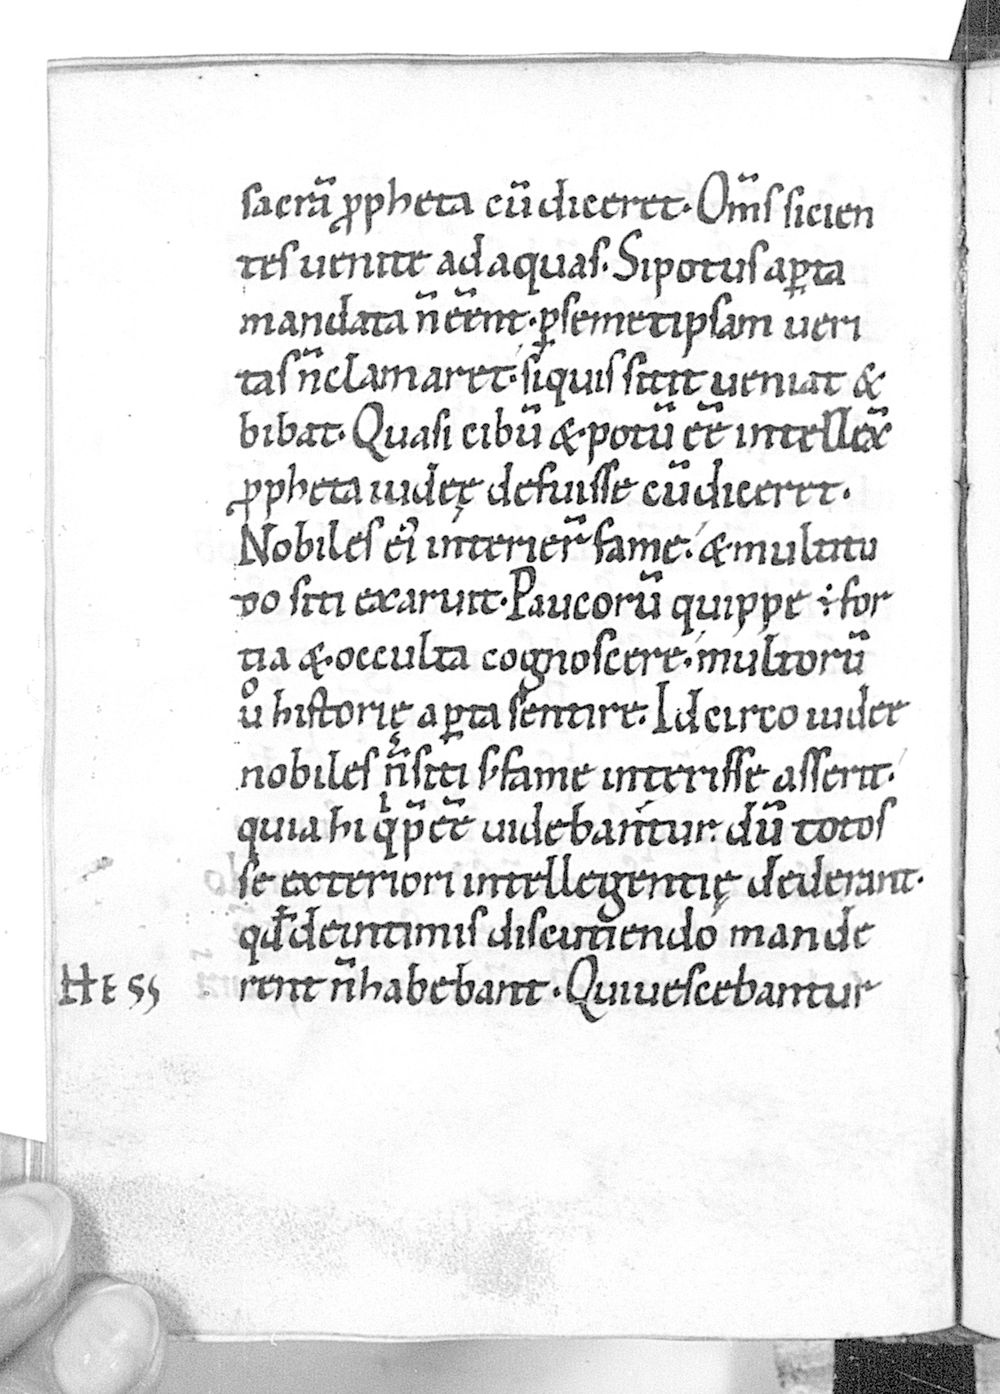 sacrã ꝓpheta cũ diceret. Om̃s sicien
tes uenite ad aquas. Si potus aꝑta
mandata ñ eẽnt. ꝑ semetipsam ueri
tas ñ clamaret. siquis sitit ueniat &
bibat. Quasi cibũ & potũ eẽ intellex̃
ꝓpheta iudeę defuisse cũ diceret.
Nobiles ei' interier̃ fame. & multitu
do siti exaruit. Paucorũ quippe ÷ for
tia & occulta cognoscere. multorũ
uͦ historię aꝑta sentire. Idcirco iudeę
nobiles ñ siti s; fame interisse asserit.
quia hi q̇ p̃eẽ uidebantur. dũ totos
se exteriori intellegentię dederant.
qđ de intimis discutiendo mande
rent ñ habebant. Qui uescebantur
HESS